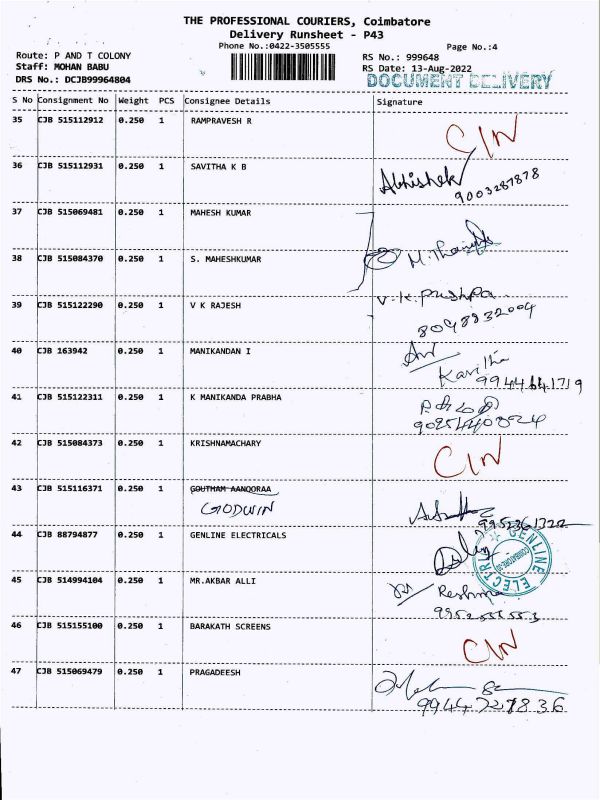 THE PROFESSIONAL COURIERS, Coimbatore
Delivery Runsheet - P43
Phone No.:0422-3505555
Page No.:4
Route: P AND T COLONY
RS No.: 999648
Staff: MOHAN BABU
RS Date: 13-Aug-2022
DRS No.: DCJB99964804
DOCUMENT DELIVERY
S No Consignment No Weight PCS Consignee Details Signature
35 CJB 515112912 0.250 1 RAMPRAVESH R
CIN
36 CJB 515112931 0.250 1 SAVITHA K B
Abhishek
9003287878
37 CJB 515069481 0.250 1 MAHESH KUMAR
38 CJB 515084370 0.250 1 S. MAHESHKUMAR
V.K. Pushpa
39 CJB 515122290 0.250 1 V K RAJESH
40 CJB 163942 0.250 1 MANIKANDAN I
Kavitha
41 CJB 515122311 0.250 1 K MANIKANDA PRABHA
42 CJB 515084373 0.250 1 KRISHNAMACHARY
CIN
43 CJB 515116371 0.250 1 GOUTHAM AANOORAA
GODWIN
44 CJB 88794877 0.250 1 GENLINE ELECTRICALS
GENLINE ELECTRIC
45 CJB 514994104 0.250 1 MR.AKBAR ALLI
Reshma
46 CJB 515155100 0.250 1 BARAKATH SCREENS
CIN
47 CJB 515069479 0.250 1 PRAGADEESH